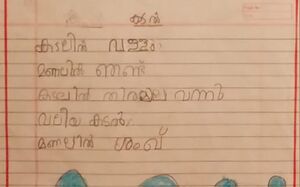 കടൽ
കടലിൽ വള്ളം
മണലിൽ ഞണ്ട്
കടലിൽ തിരമാല വന്നു
വലിയ കടൽ
മണലിൽ ശംഖ്